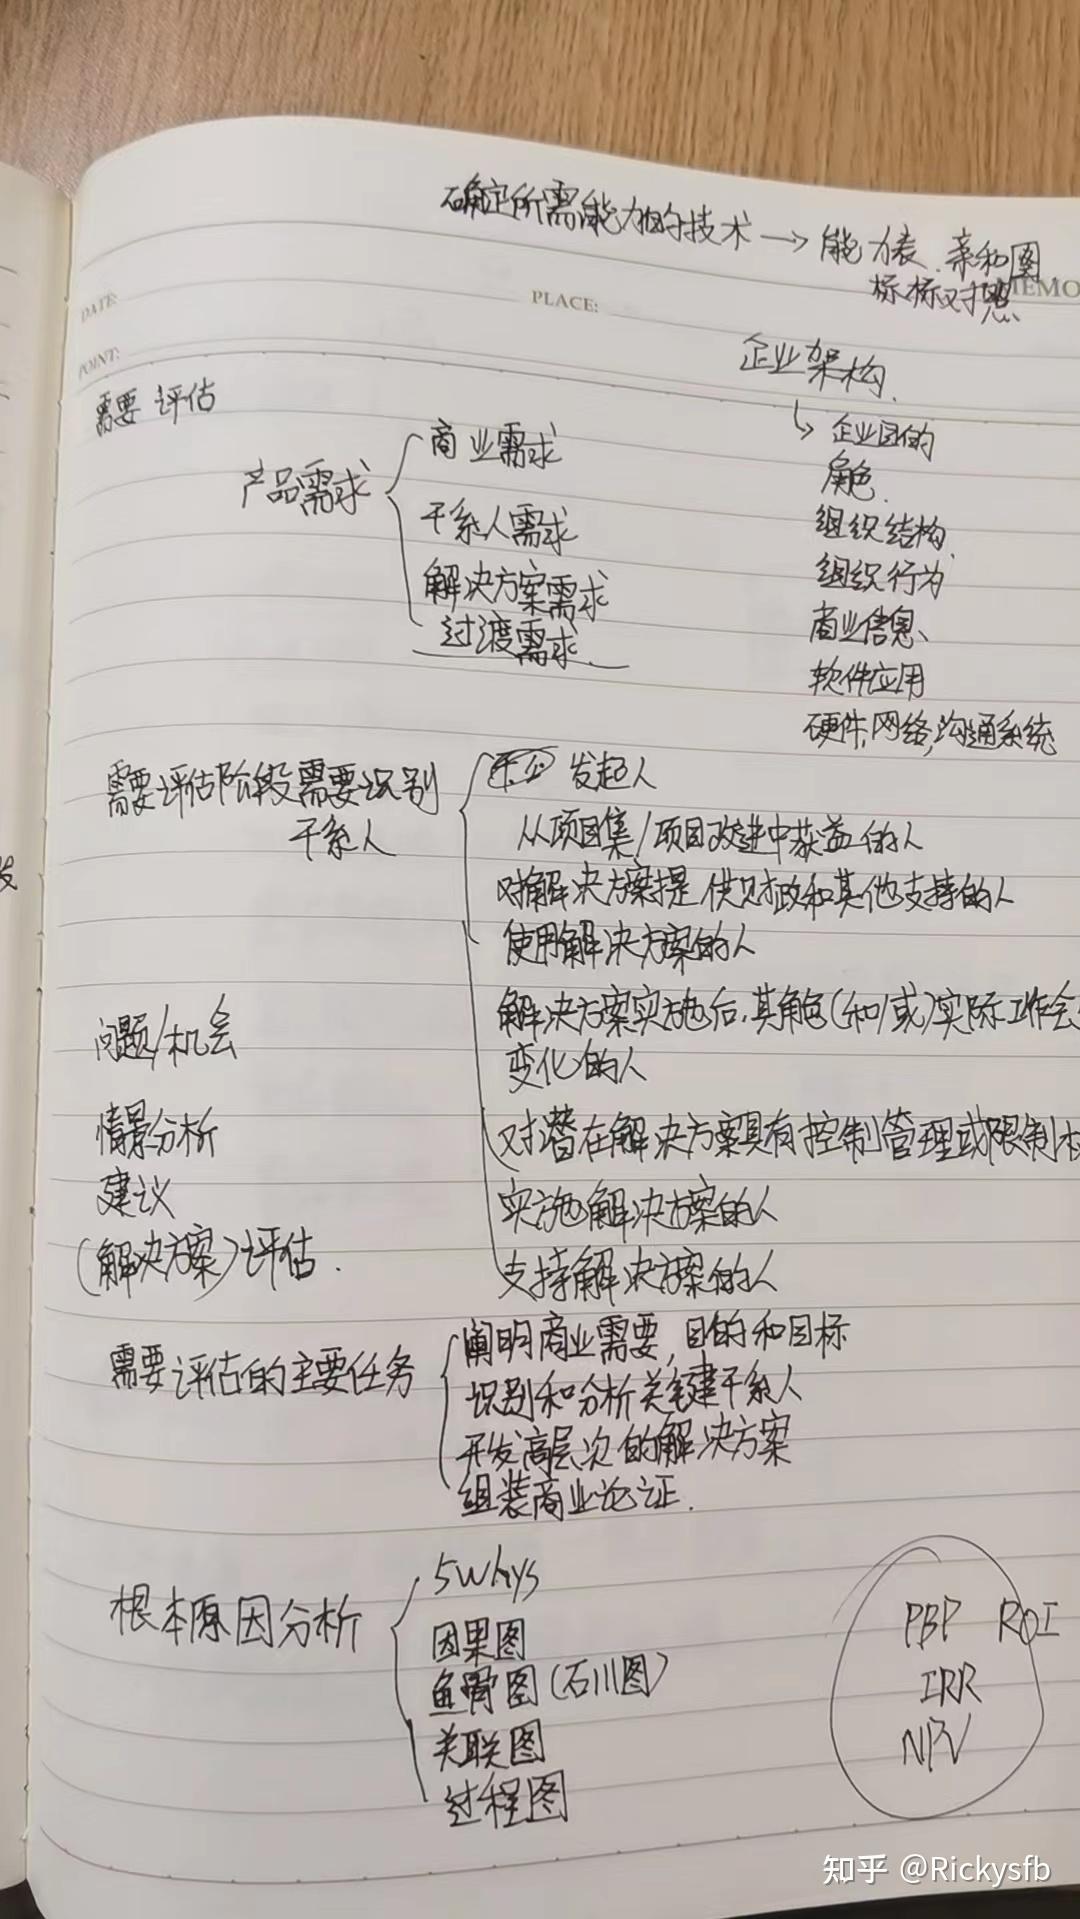 确定所需能力的技术→能力表、亲和图
标杆对照
MEMO
DATE:
PLACE:
POINT:
企业架构
↳ 企业目的
角色
组织结构
组织行为
商业信息、
软件应用
硬件,网络,沟通系统
需要评估
产品需求
商业需求
干系人需求
解决方案需求
过渡需求
需要评估阶段需要识别
干系人
发起人
从项目集/项目改进中获益的人
对解决方案提供财政和其他支持的人
使用解决方案的人
解决方案实施后,其角色(和/或)实际工作会
变化的人
对潜在解决方案具有控制管理或限制
实施解决方案的人
支持解决方案的人
问题/机会
情景分析
建议
(解决方案)评估.
需要评估的主要任务
阐明商业需要,目的和目标
识别和分析关键干系人
开发高层次的解决方案
组装商业论证.
根本原因分析
5whys
因果图
鱼骨图(石川图)
关联图
过程图
PBP ROI
IRR
NPV
知乎 @Rickysfb